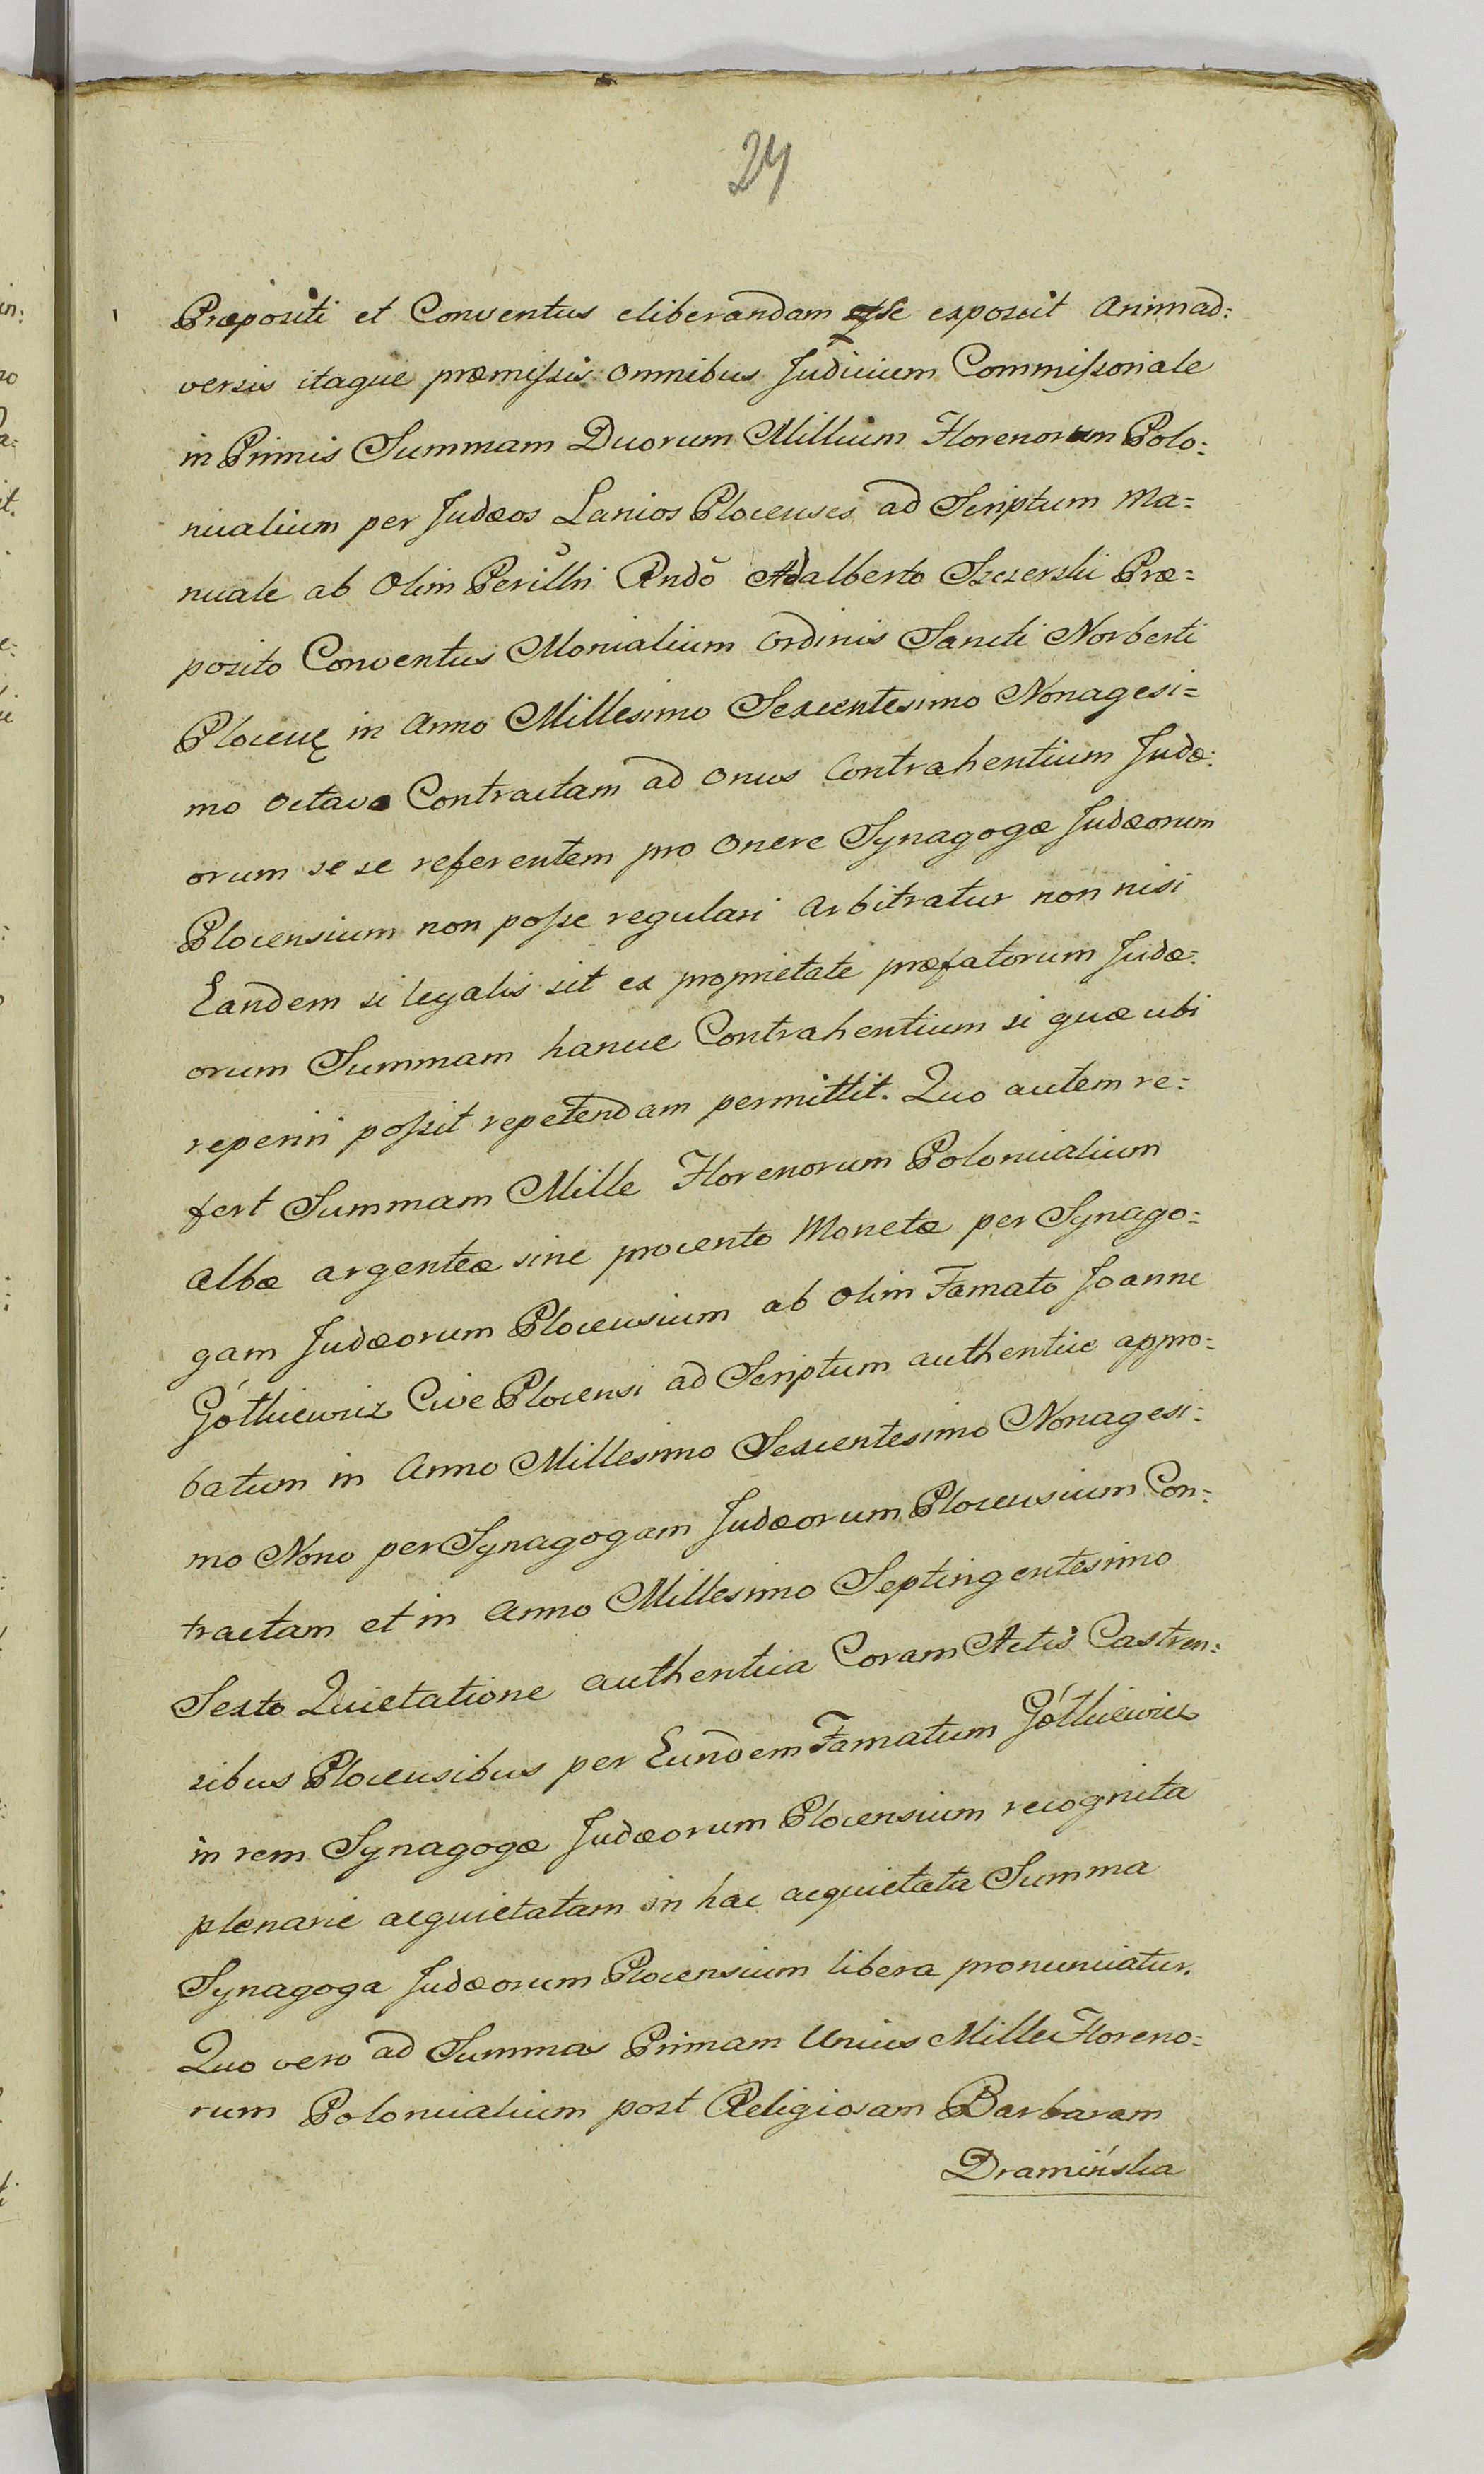 24
Præpositi et Conventus eliberandam esse exposuit Animad:
versis itaque præmissis omnibus Judicium Commissoriale
in Primis Summam Duorum Millium Florenorum Polo:
nicalium per Judæos Lanios Plocenses ad Scriptum Ma=
nuale ab Olim Perilln Rndo Adalberto Szczerski Præ=
posito Conventus Monialium Ordinis Sancti Norberti
Plocen in Anno Millesimo Sexcentesimo Nonagesi=
mo Octavo Contractam ad onus Contrahentium Judæ:
orum se se referentem pro Onere Synagogæ Judæorum
Plocensium non posse regulari Arbitratur non nisi
Eandem si legalis sit ex proprietate præfatorum Judæ:
orum Summam hance Contrahentium si quæ ubi
reperiri possit repetendam permittit. Quo autem re=
fert Summam Mille Florenorum Polonicalium
Albæ argenteæ sine procento Monetæ per Synago:
gam Judæorum Plocensium ab Olim Famato Joanne
Gótkiewicz Cive Plocensi ad Scriptum authentice appro:
batum in Anno Millesimo Sexcentesimo Nonagesi:
mo Nono per Synagogam Judæorum Plocensium Con:
tractam et in Anno Millesimo Septingentesimo
Sexto Quietatione authentica Coram Actis Castren:
sibus Plocensibus per Eundem Famatum Gótkiewicz
in rem Synagogæ Judæorum Plocensium recognita
plenarie acquietatam in hac acquietata Summa
Synagoga Judæorum Plocensium libera pronunciatur.
Quo vero ad Summas Primam Unius Mille Floreno:
rum Polonicalium post Religiosam Barbaram
Dramińska